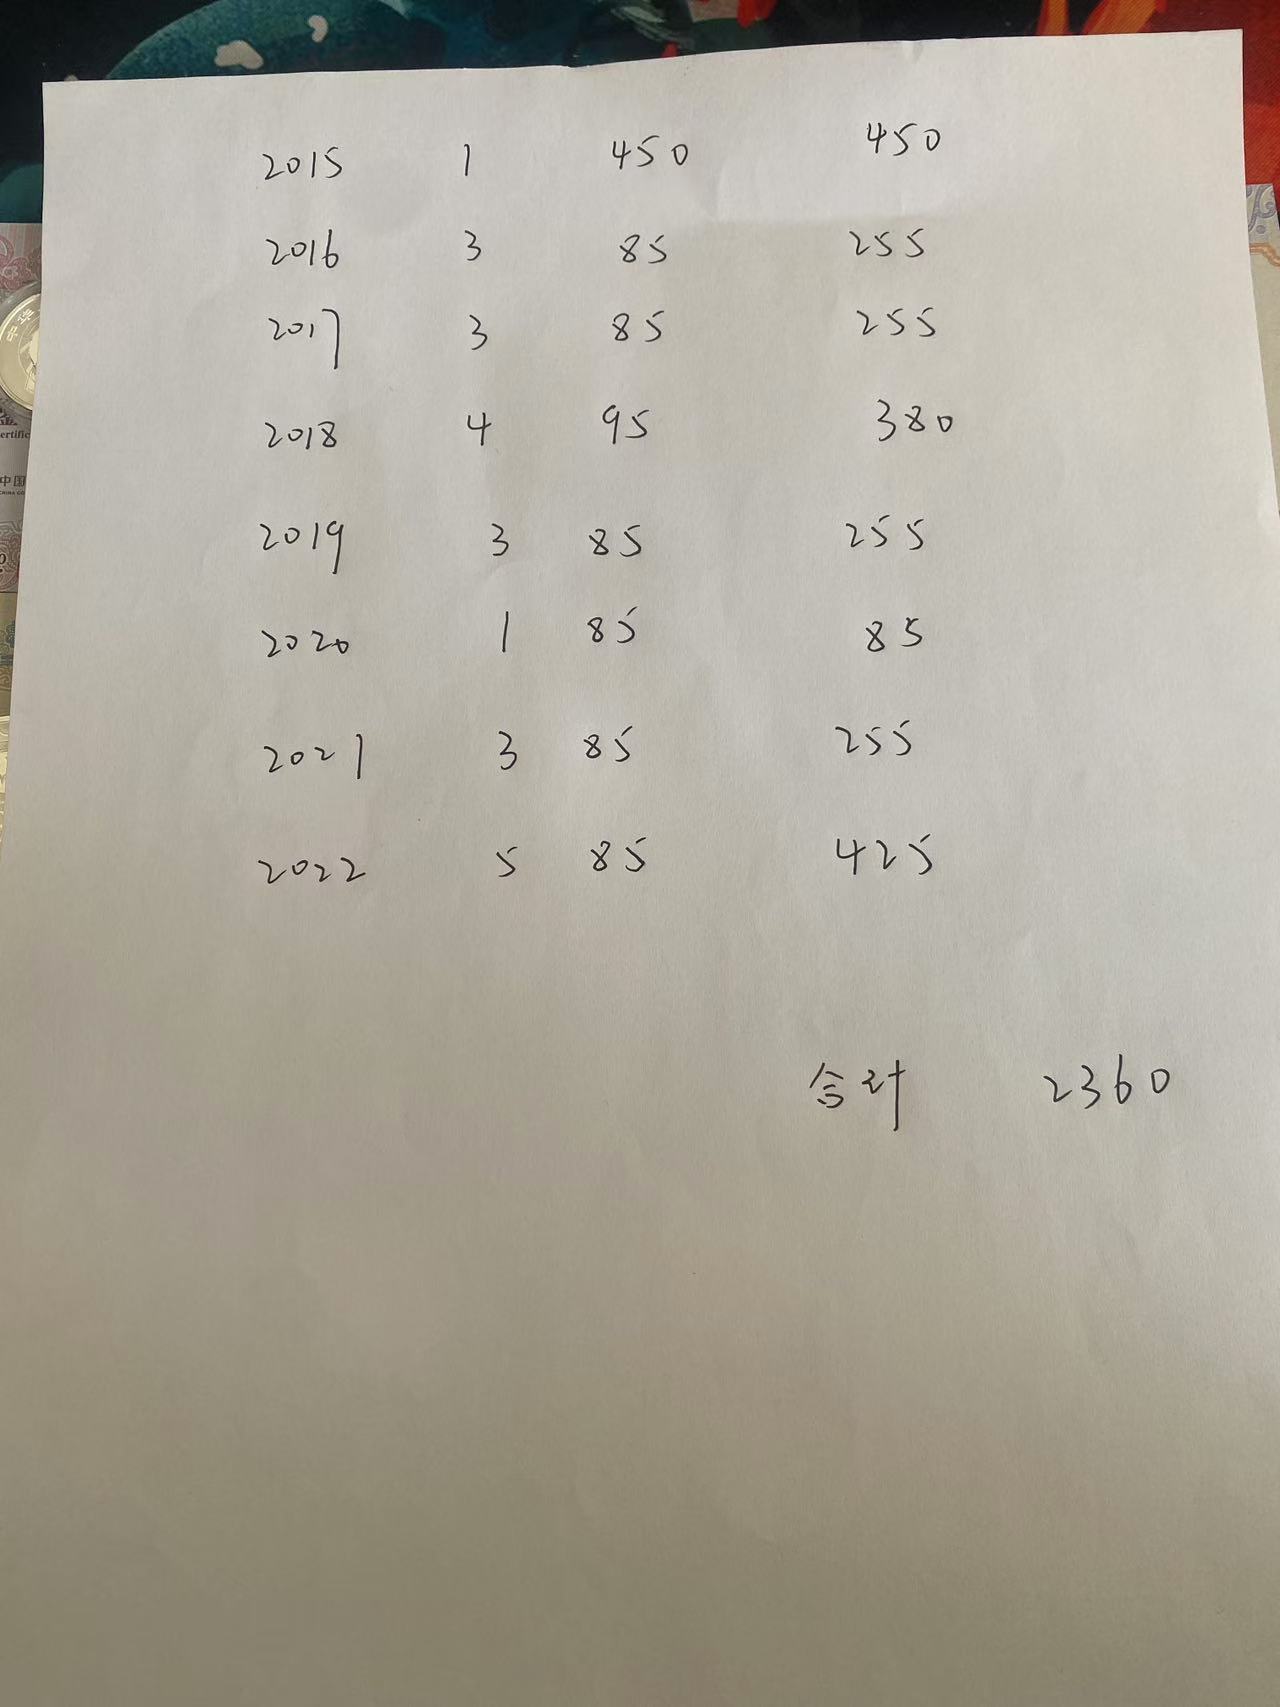 2015 1 450 450
2016 3 85 255
2017 3 85 255
2018 4 95 380
2019 3 85 255
2020 1 85 85
2021 3 85 255
2022 5 85 425
合计 2360
中国